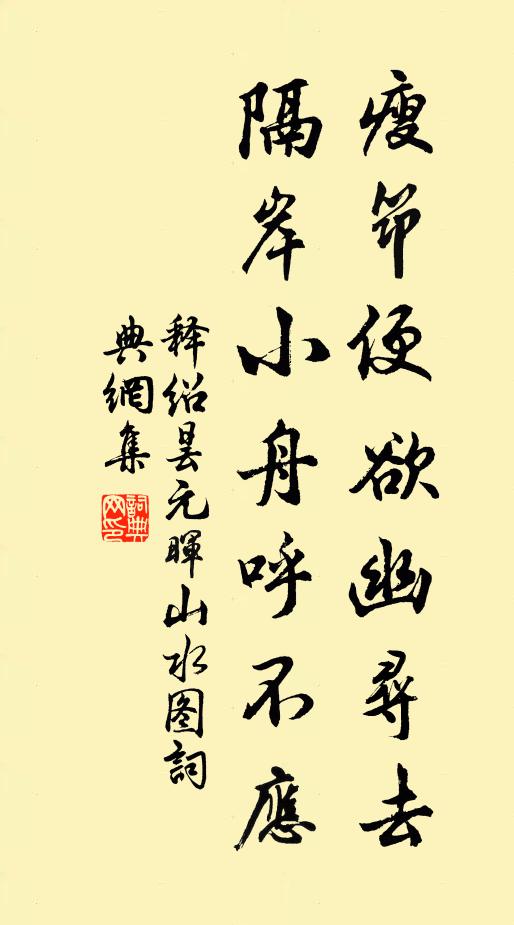 瘦笻便欲幽尋去
隔岸小舟呼不應
释绍昙元暉山水图詞
典網集
詞典網印